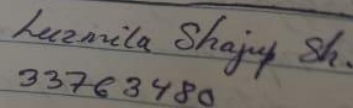 Luzmila Shajup Sh.
33763480